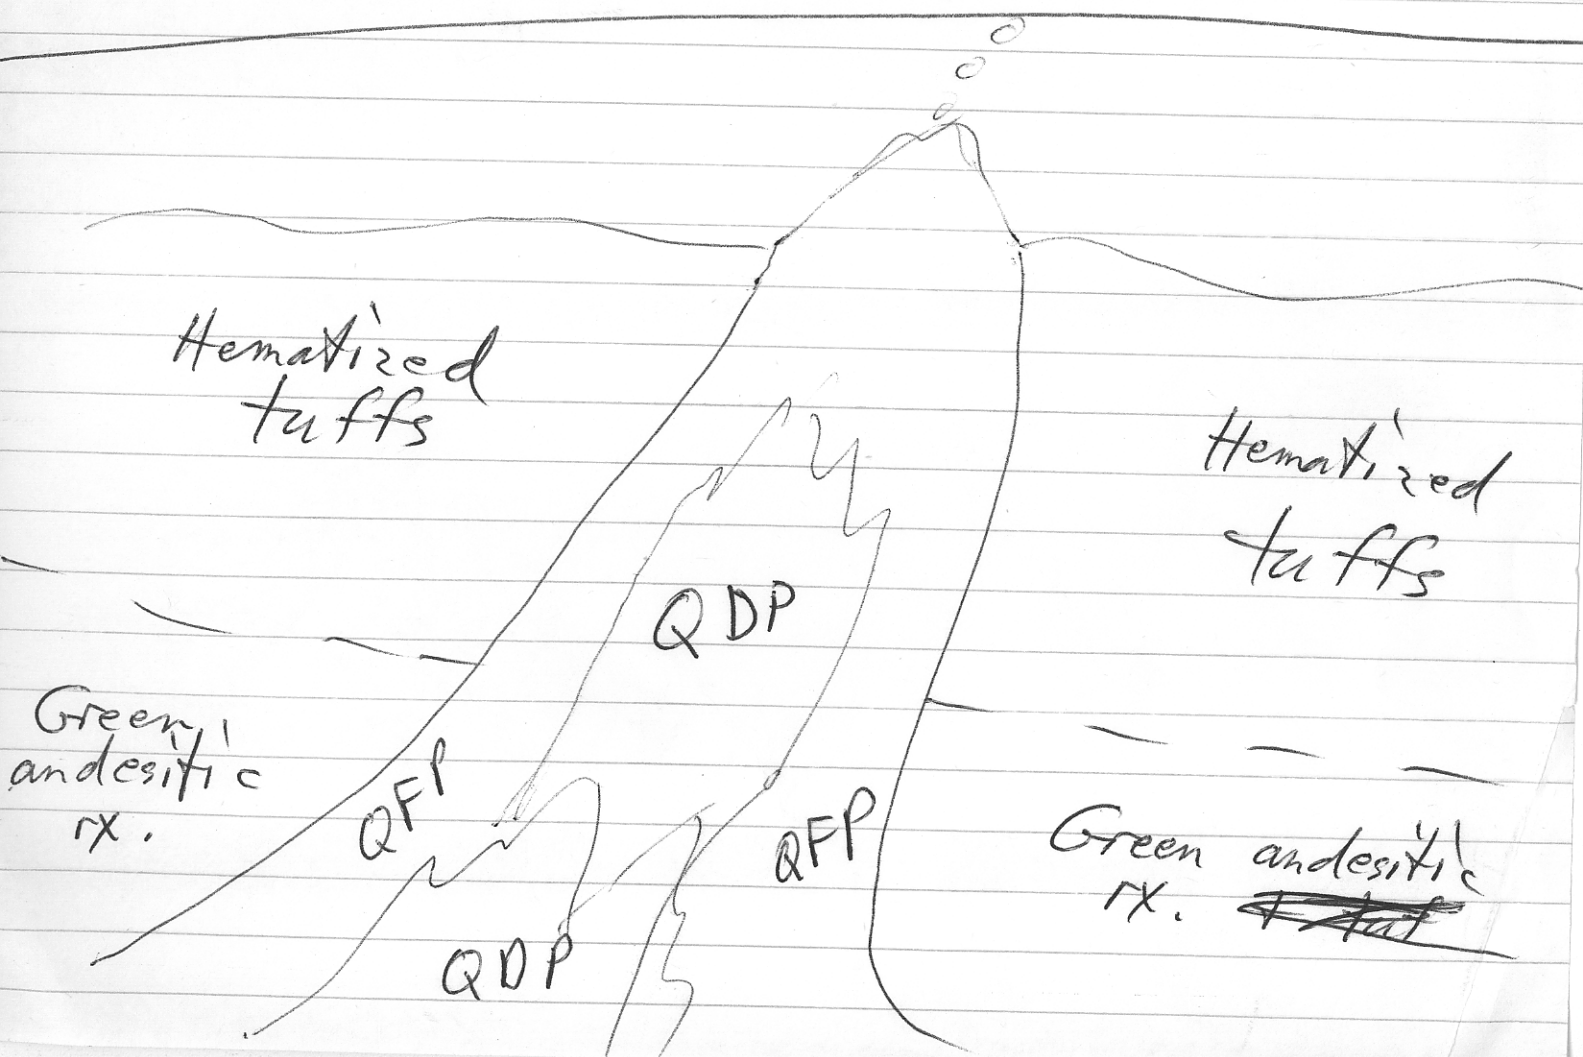 Hematized
tuffs
Hematized
tuffs
QDP
Green
andesitic
rx.
QFP
QFP
Green andesitic
rx.
QDP